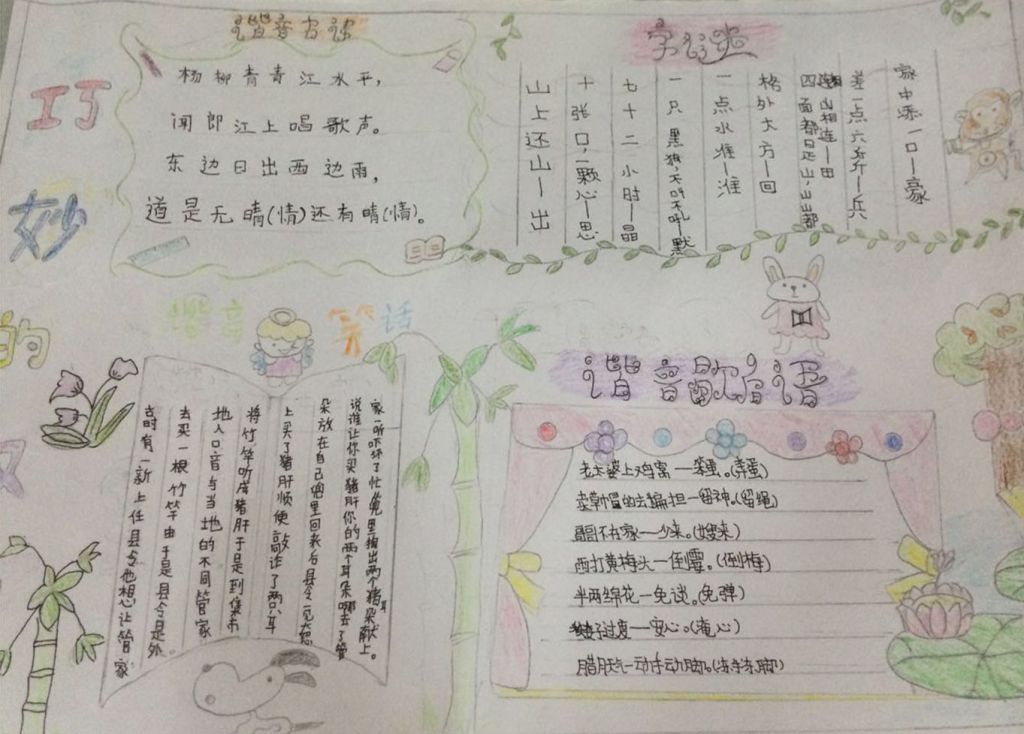 巧
妙
的
汉
谐音古诗
杨柳青青江水平，
闻郎江上唱歌声。
东边日出西边雨，
道是无晴(情)还有晴(情)。
字谜
家中添一口—豪
差一点六斤—兵
四面都是山，山山都
连山相连—田
格外大方—回
一点水准—淮
一只黑狗，不叫不吼—默
七十二小时—晶
十张口，一颗心—思
山上还山—出
谐音笑话
古时有一新上任县令他想让管家
去买一根竹竿由于是县令是外
地人口音与当地的不同管家
将竹竿听成猪肝于是到集市
上买了猪肝顺便敲诈了两只耳
朵放在自己兜里回来后县令一见大怒
说谁让你买猪肝你的两个耳朵哪去了管
家一听吓坏了忙从兜里掏出两个猪耳朵献上。
谐音歇后语
老太婆上鸡窝—笨蛋。(弄蛋)
卖草帽的去扁担—留神。(留绳)
哥哥不在家—少来。(嫂来)
西打黄梅头—倒霉。(倒梅)
半两绵花—免谈。(免弹)
过度—安心。(淹心)
腊月天气—动手动脚。(冻手冻脚)